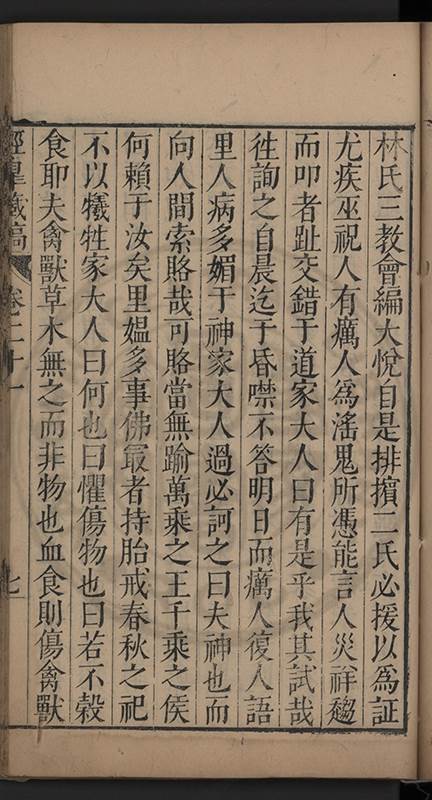 林氏三教會編大悅自是排擯二氏必援以為証
尤疾巫祝人有癘人為滛鬼所憑能言人災祥趨
而叩者趾交錯于道家大人曰有是乎我其試哉
徃詢之自晨迄于昏噤不答明日而癘人復人語
里人病多媚于神家大人過必訶之曰夫神也而
向人間索賂哉可賂當無踰萬乘之王千乘之侯
何賴于汝矣里媼多事佛最者持胎戒春秋之祀
不以犧牲家大人曰何也曰懼傷物也曰若不穀
食耶夫禽獸草木無之而非物也血食則傷禽獸
經臯藏稿 卷二十一 七